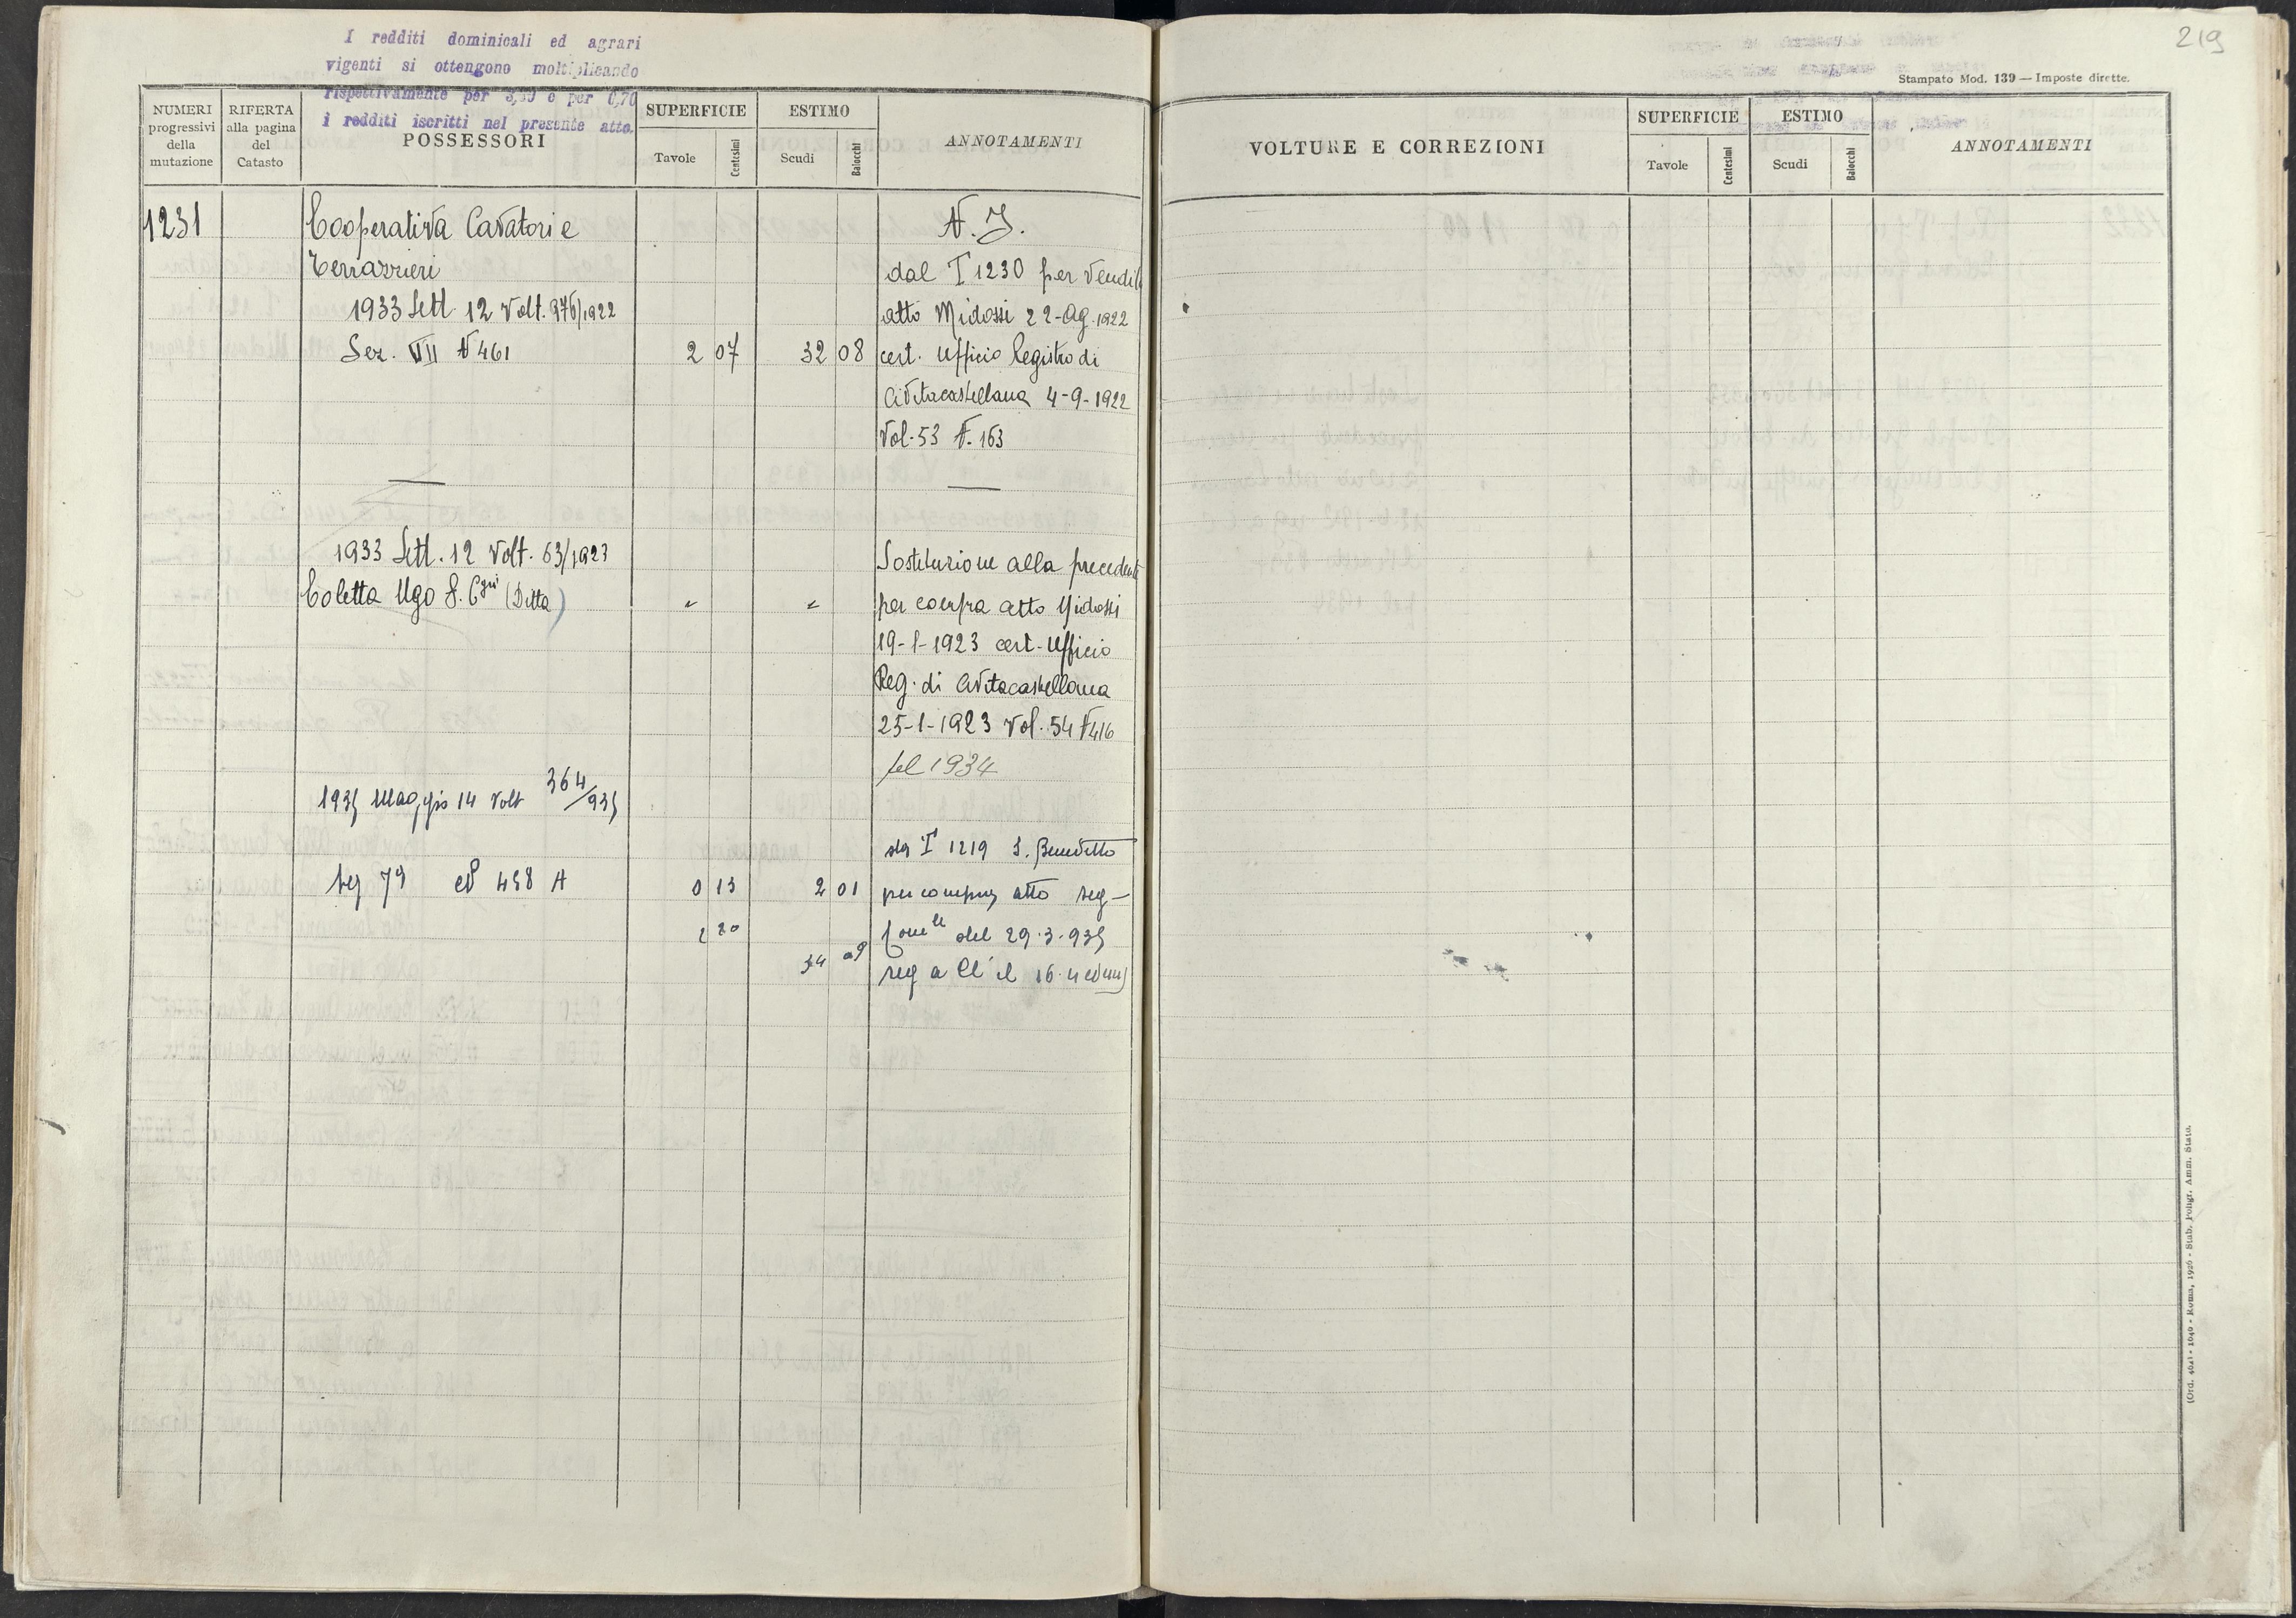 I redditi dominicali ed agrari
vigenti si ottengono moltiplicando
rispettivamente per 3,50 e per 0,70
i redditi iscritti nel presente atto.
219
Stampato Mod. 139 — Imposte dirette.
NUMERI progressivi della mutazione
RIFERTA alla pagina del Catasto
POSSESSORI
SUPERFICIE
Tavole Centesimi
ESTIMO
Scudi Baiocchi
ANNOTAMENTI
1231 Cooperativa Cavatori e N. I.
Terrazzieri dal T 1230 per vendita
1933 Sett. 12 Volt. 976/1922 atto Midossi 22-Ag. 1922
Sez. VII N 461 2 07 32 08 cert. Ufficio Registro di
Civitacastellana 4-9-1922
Vol. 53 N. 163
1933 Sett. 12 Volt. 63/1923 Sostituzione alla precedente
Coletta Ugo f. Cgni (Ditta) " " per compra atto Midossi
19-1-1923 cert. Ufficio
Reg. di Civitacastellana
25-1-1923 Vol. 54 N 416
pel 1934
1935 Maggio 14 Volt 364/935
da T 1219 S. Benedetto
Sez 7ª N 458 A 0 13 2 01 per compra atto seg-
2 20 del 29.3.935
34 09 reg a il 16.4
VOLTURE E CORREZIONI
SUPERFICIE
Tavole Centesimi
ESTIMO
Scudi Baiocchi
ANNOTAMENTI
(Ord. 4041 - 1040 - Roma, 1926 - Stab. Poligr. Amm. Stato.